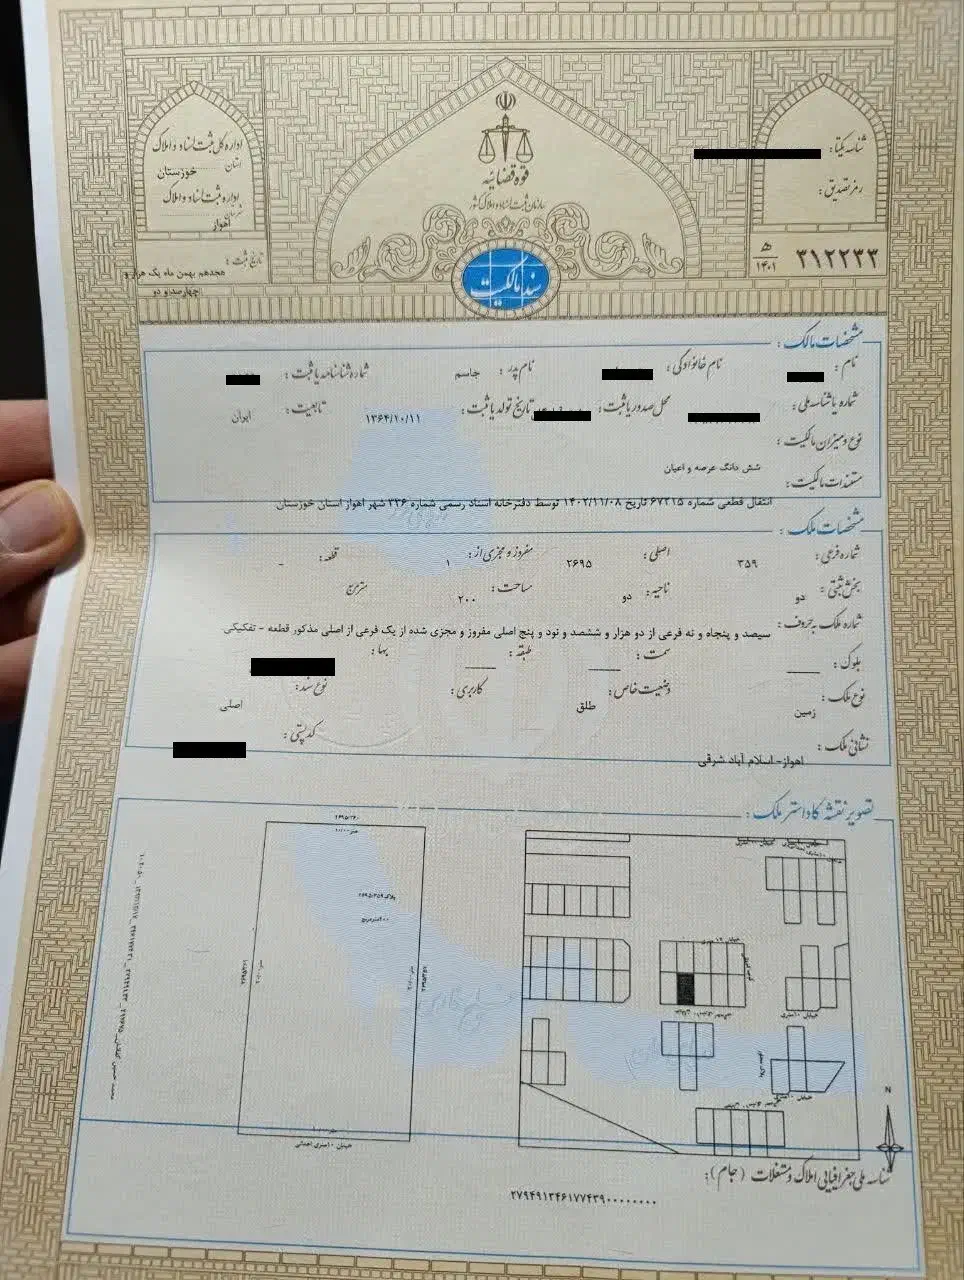 قوه قضائیه
سازمان ثبت اسناد و املاک کشور
سند مالکیت
شناسه یکتا:
رمز تصدیق:
۳۱۲۲۳۳
ه‍
۱۴۰۱
اداره کل ثبت اسناد و املاک
استان خوزستان
اداره ثبت اسناد و املاک
شهرستان اهواز
تاریخ ثبت:
هجدهم بهمن ماه یک هزار و
چهارصد و دو
مشخصات مالک:
نام: نام خانوادگی: نام پدر: جاسم شماره شناسنامه یا ثبت:
شماره یا شناسه ملی: محل صدور یا ثبت: تاریخ تولد یا ثبت: ۱۳۶۴/۱۰/۱۱ تابعیت: ایران
نوع و میزان مالکیت:
شش دانگ عرصه و اعیان
مستندات مالکیت:
انتقال قطعی شماره ۶۷۲۱۵ تاریخ ۱۴۰۲/۱۱/۰۸ توسط دفترخانه اسناد رسمی شماره ۳۳۶ شهر اهواز استان خوزستان
مشخصات ملک:
شماره فرعی: ۳۵۹ اصلی: ۲۶۹۵ مفروز و مجزی از: ۱ قطعه: -
بخش ثبتی: دو ناحیه: دو مساحت: ۲۰۰ مترمربع
شماره ملک به حروف:
سیصد و پنجاه و نه فرعی از دو هزار و ششصد و نود و پنج اصلی مفروز و مجزی شده از یک فرعی از اصلی مذکور قطعه - تفکیکی
بلوک: سمت: طبقه: بها:
نوع ملک: زمین وضعیت خاص: طلق کاربری: نوع سند: اصلی
نشانی ملک: کد پستی:
اهواز- اسلام آباد شرقی
تصویر نقشه کاداستر ملک:
۲۶۹۵/۳۶۰
پلاک ۲۶۹۵/۳۵۹
۲۰۰ مترمربع
خیابان ۱۰ متری احداثی
خیابان ۱۲ متری
خیابان ۱۰ متری
N
شناسه ملی جغرافیایی املاک و مستغلات (جام):
۲۷۹۴۹۱۳۴۶۱۷۷۴۳۹۰۰۰۰۰۰۰۰